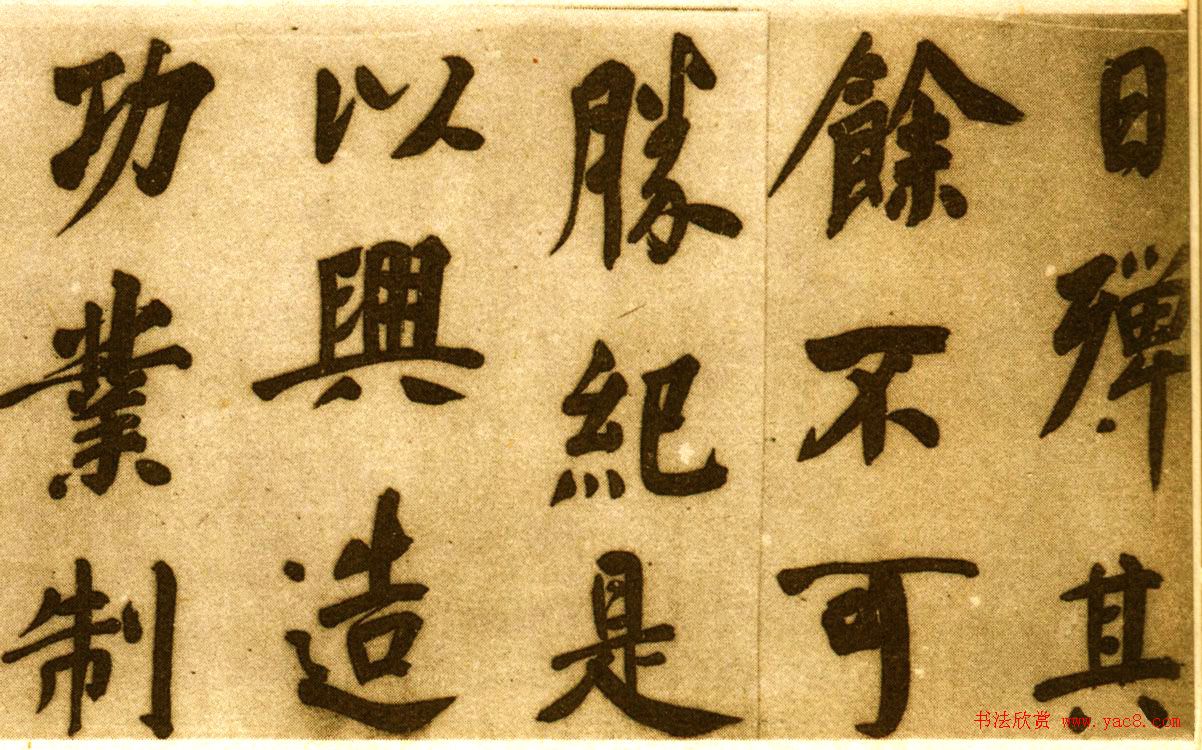 日殫其
餘不可
勝紀是
以興造
功業制
书法欣赏 www.yac8.com